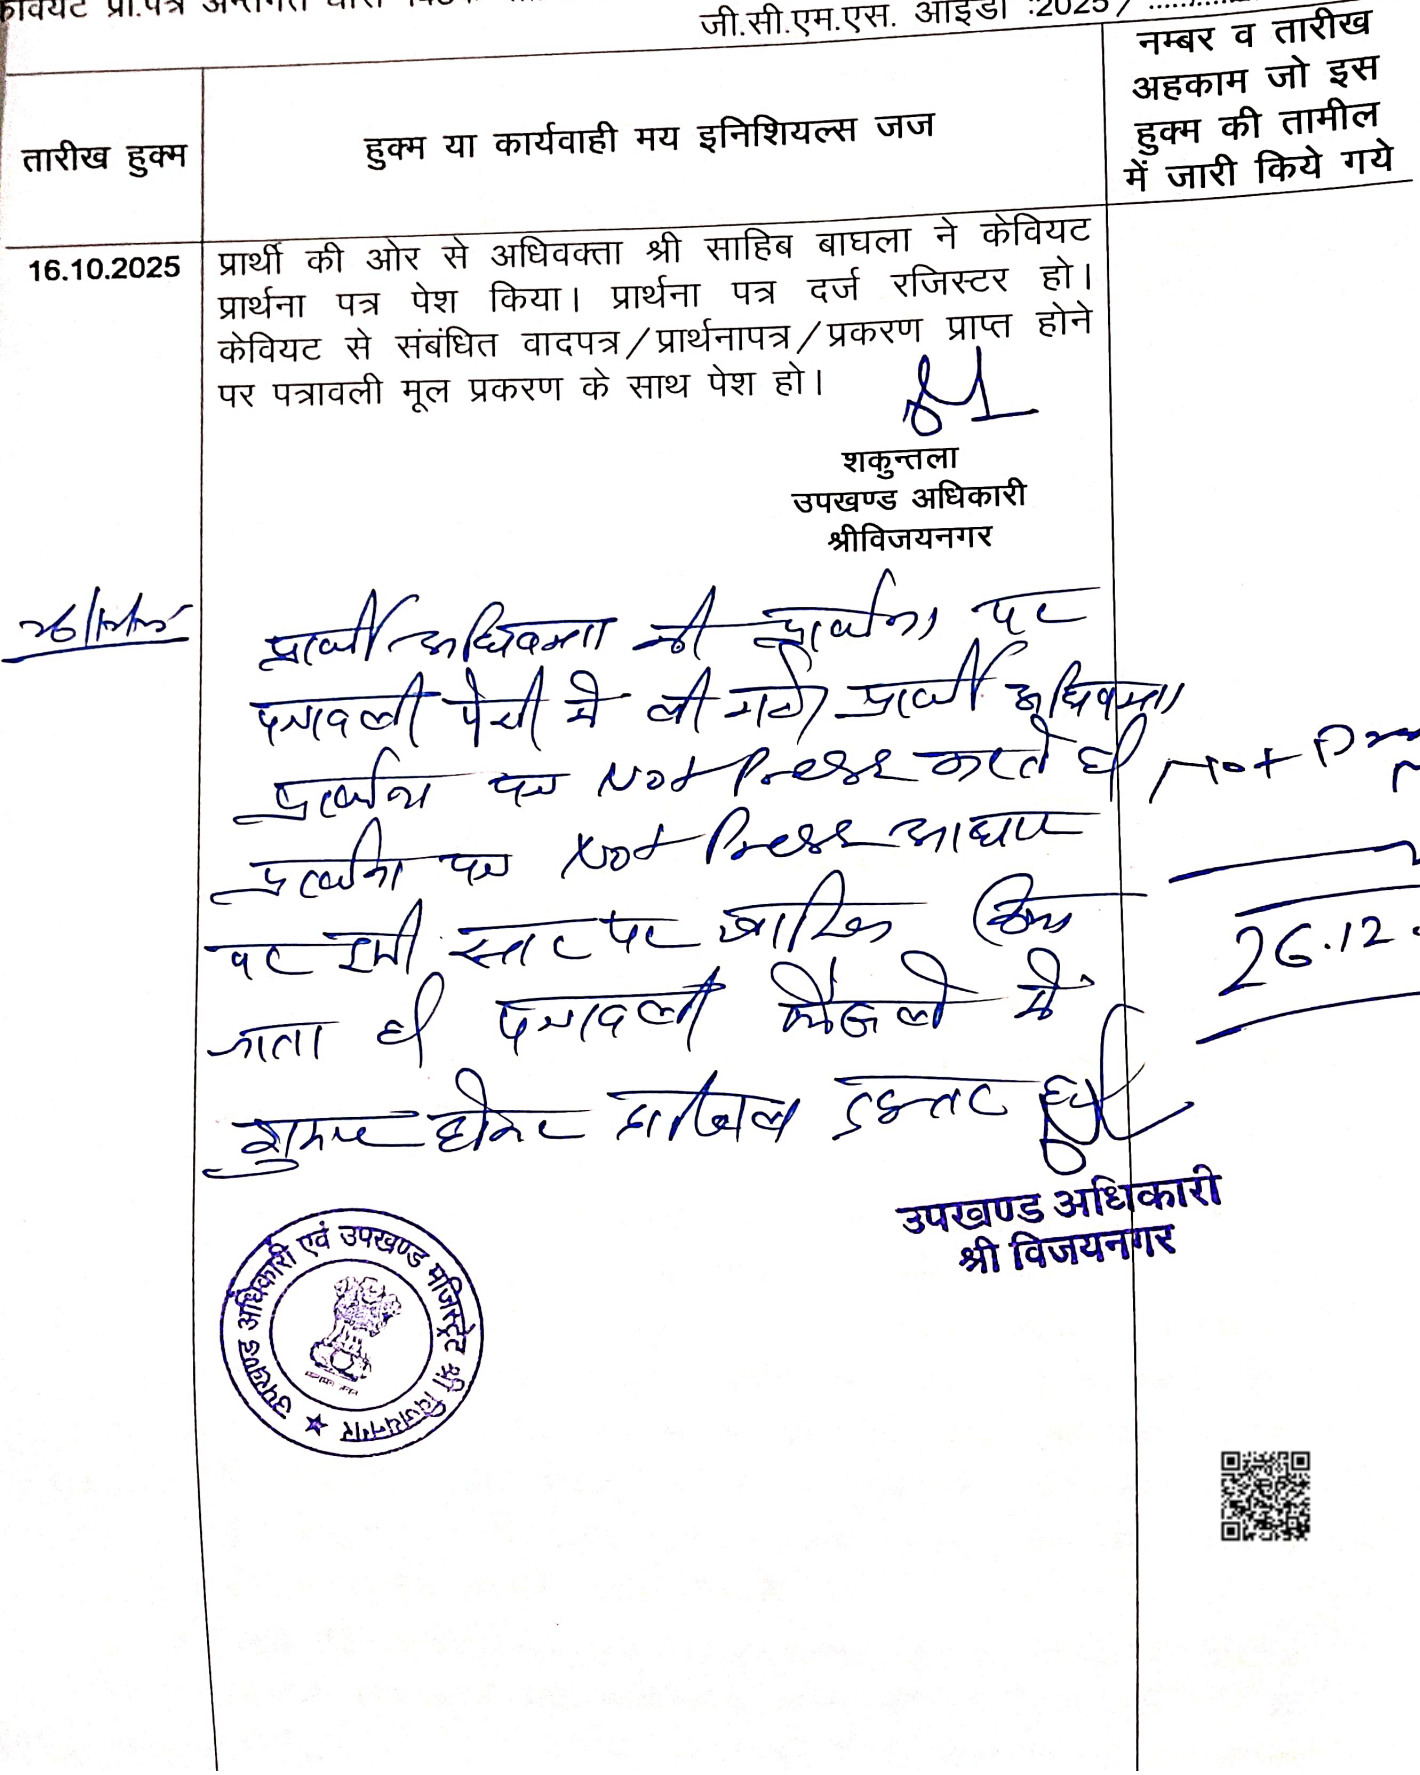 केवियट प्रा.पत्र अन्तर्गत धारा
जी.सी.एम.एस. आईडी :2025/ ..........
तारीख हुक्म
हुक्म या कार्यवाही मय इनिशियल्स जज
नम्बर व तारीख
अहकाम जो इस
हुक्म की तामील
में जारी किये गये
16.10.2025
प्रार्थी की ओर से अधिवक्ता श्री साहिब बाघला ने केवियट
प्रार्थना पत्र पेश किया। प्रार्थना पत्र दर्ज रजिस्टर हो।
केवियट से संबंधित वादपत्र/प्रार्थनापत्र/प्रकरण प्राप्त होने
पर पत्रावली मूल प्रकरण के साथ पेश हो।
शकुन्तला
उपखण्ड अधिकारी
श्रीविजयनगर
प्रार्थी अधिवक्ता की प्रार्थना पर
पत्रावली पेशी में ली गई। प्रार्थी अधिवक्ता
प्रार्थना पत्र Not Press करते है
Not
प्रार्थना पत्र Not Press आधार
पर इसी स्तर पर खारिज किया
26.12.
जाता है पत्रावली फैसले में
शुमार होकर दाखिल दफ्तर हो
उपखण्ड अधिकारी
श्री विजयनगर
उपखण्ड अधिकारी एवं उपखण्ड मजिस्ट्रेट श्री विजयनगर